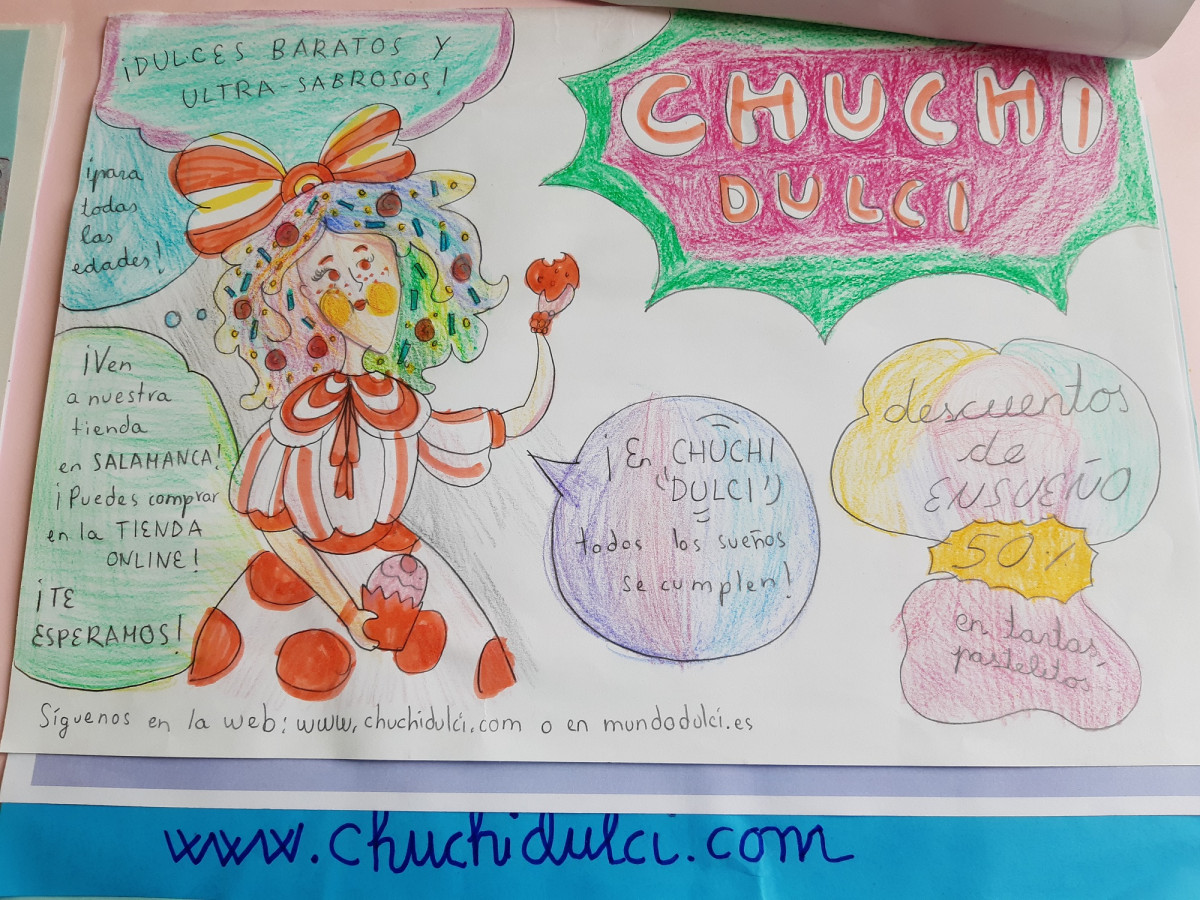 ¡DULCES BARATOS Y
ULTRA-SABROSOS!
¡para
todas
las
edades!
CHUCHI
DULCI
¡Ven
a nuestra
tienda
en SALAMANCA!
¡Puedes comprar
en la TIENDA
ONLINE!
¡TE
ESPERAMOS!
¡En CHUCHI
"DULCI"
todos los sueños
se cumplen!
descuentos
de
ENSUEÑO
50%
en tartas,
pastelitos...
Síguenos en la web: www.chuchidulci.com o en mundodulci.es
www.chuchidulci.com